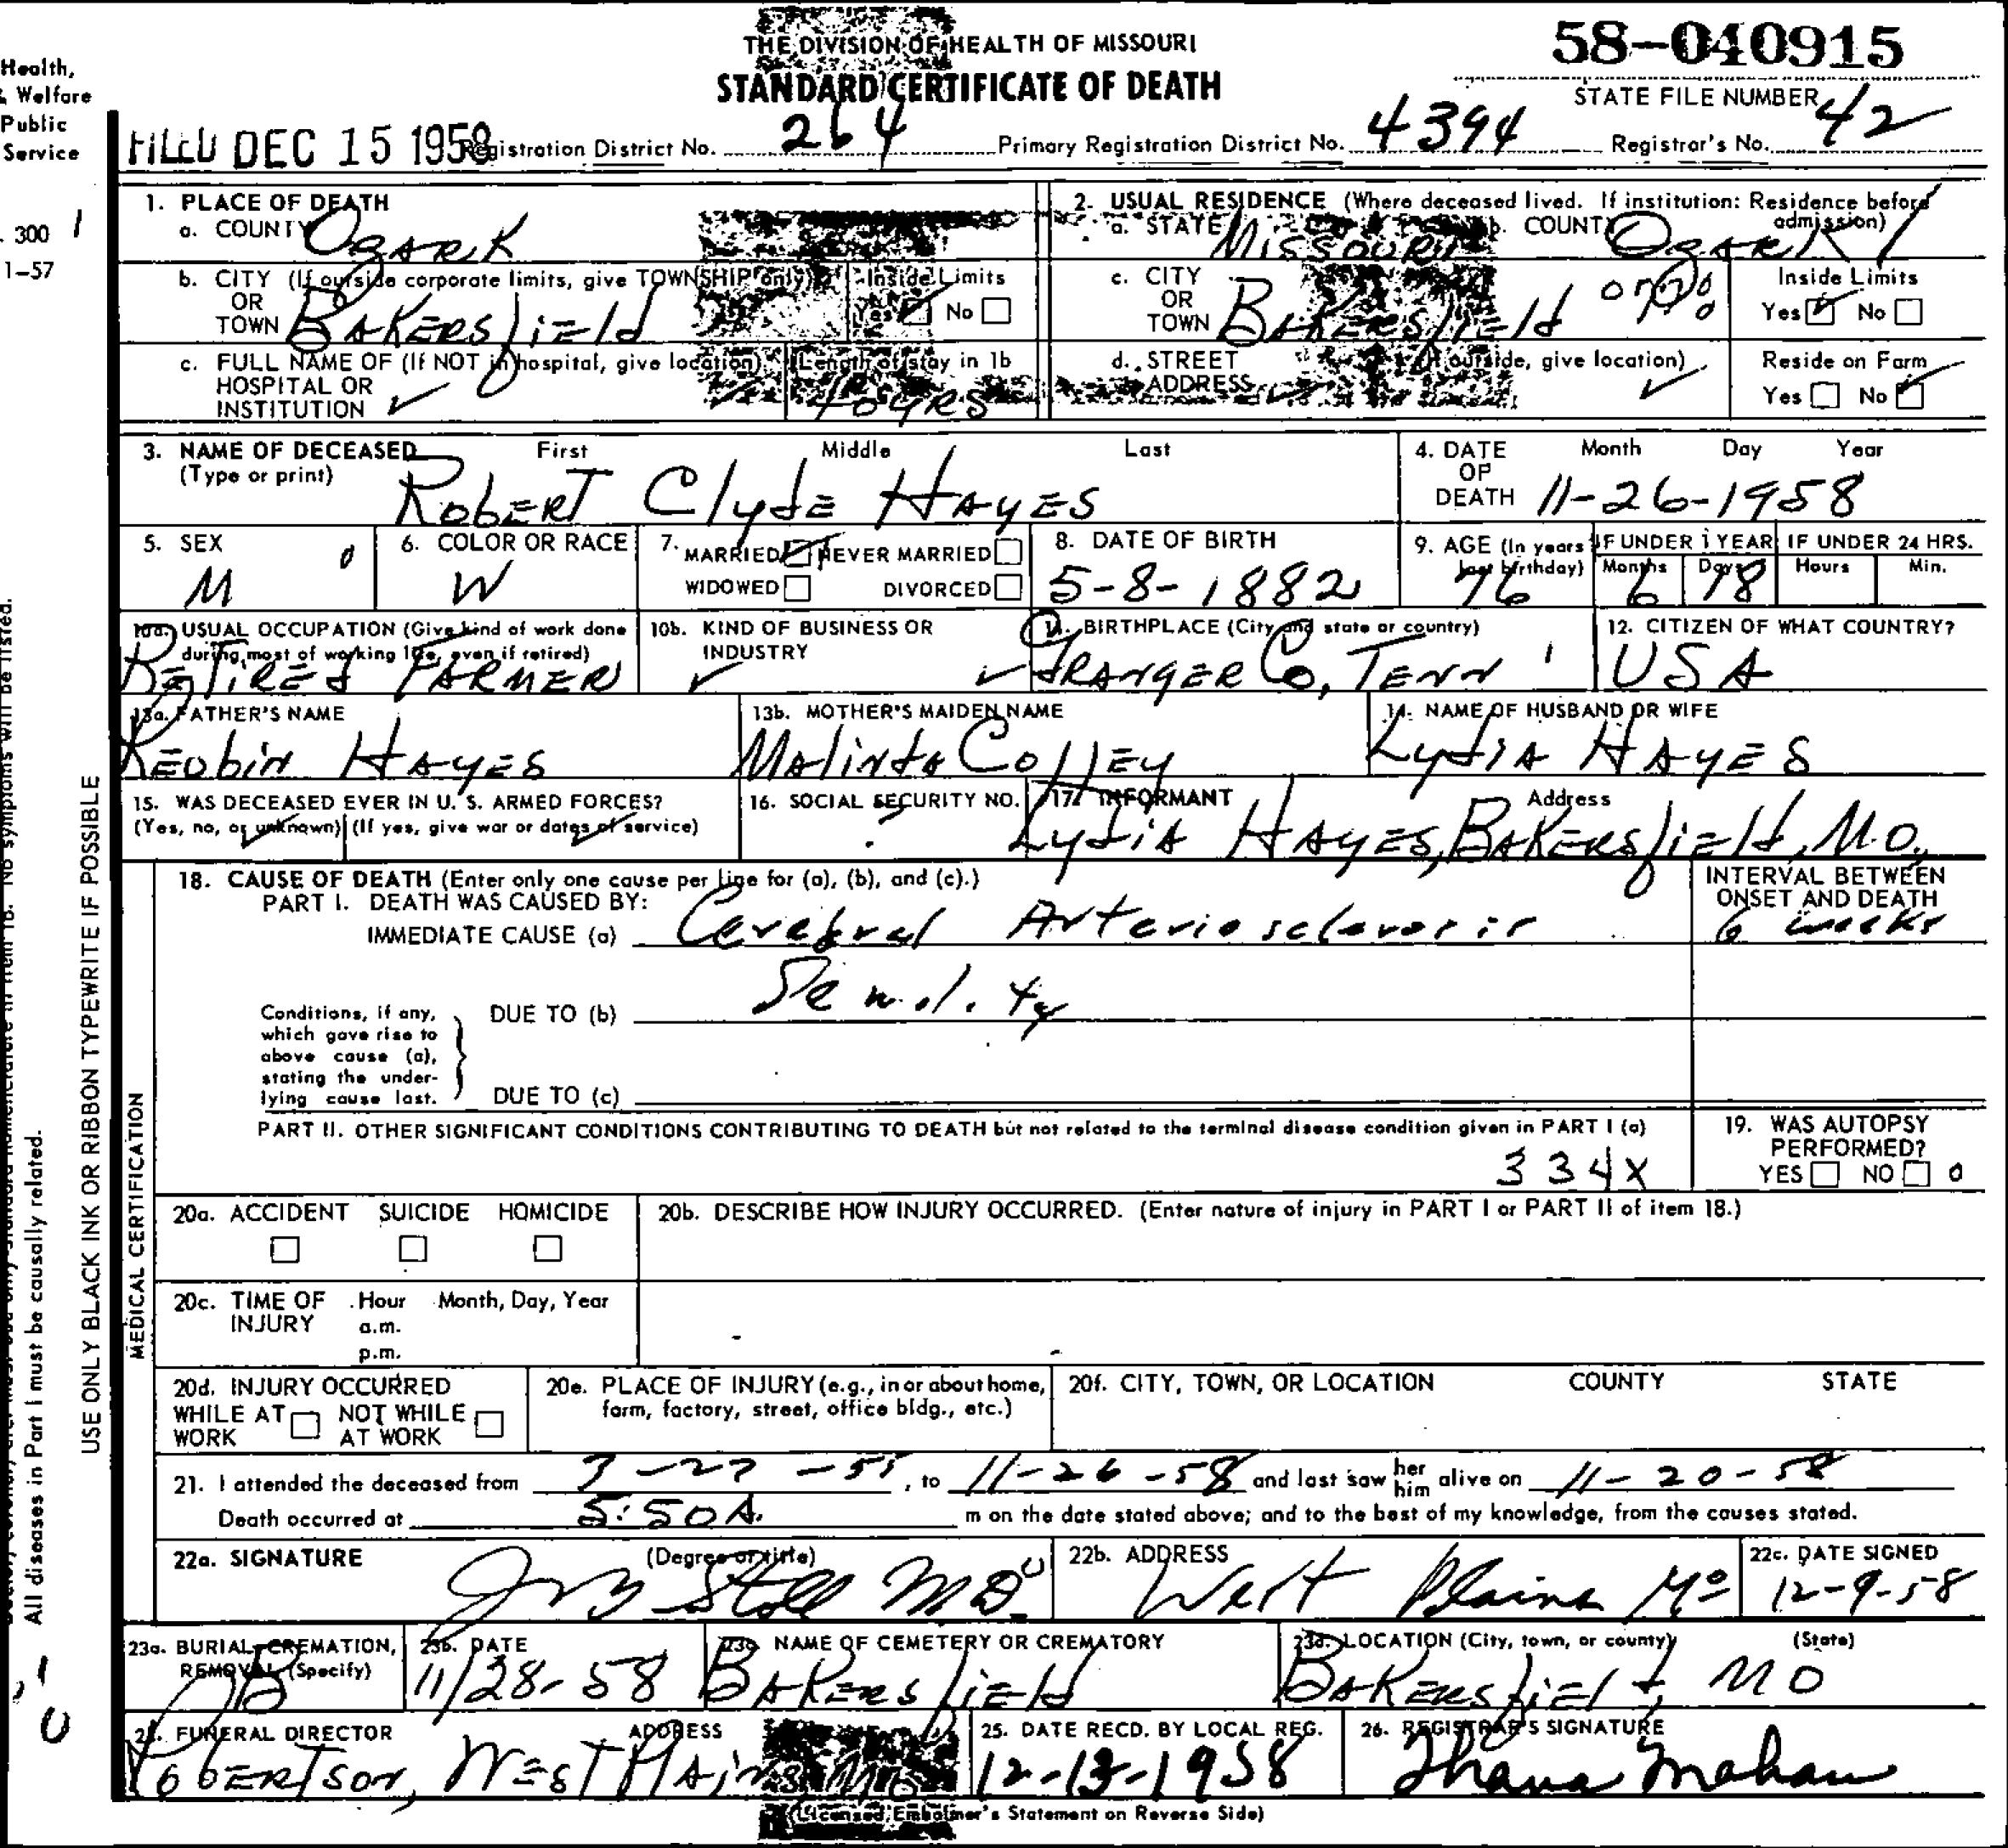 THE DIVISION OF HEALTH OF MISSOURI
STANDARD CERTIFICATE OF DEATH
58-040915
STATE FILE NUMBER
Health,
& Welfare
Public
Service
FILED DEC 15 1958 Registration District No. 264 Primary Registration District No. 4394 Registrar's No. 42
300 1
1-57
1. PLACE OF DEATH
a. COUNTY Ozark
2. USUAL RESIDENCE (Where deceased lived. If institution: Residence before admission)
a. STATE Missouri b. COUNTY Ozark
b. CITY (If outside corporate limits, give TOWNSHIP only) OR TOWN Bakersfield
Inside Limits Yes No
c. CITY OR TOWN Bakersfield
Inside Limits Yes No
c. FULL NAME OF (If NOT in hospital, give location) HOSPITAL OR INSTITUTION
Length of stay in 1b
yrs
d. STREET ADDRESS (If outside, give location)
Reside on Farm Yes No
3. NAME OF DECEASED First Middle Last
(Type or print) Robert Clyde Hayes
4. DATE OF DEATH Month Day Year
11-26-1958
5. SEX M
6. COLOR OR RACE W
7. MARRIED NEVER MARRIED
WIDOWED DIVORCED
8. DATE OF BIRTH 5-8-1882
9. AGE (In years last birthday) 76
IF UNDER 1 YEAR Months 6 Days 18
IF UNDER 24 HRS. Hours Min.
10a. USUAL OCCUPATION (Give kind of work done during most of working life, even if retired)
Retired Farmer
10b. KIND OF BUSINESS OR INDUSTRY
11. BIRTHPLACE (City and state or country)
Granger Co, Tenn
12. CITIZEN OF WHAT COUNTRY?
USA
13a. FATHER'S NAME
Reubin Hayes
13b. MOTHER'S MAIDEN NAME
Malinda Colley
14. NAME OF HUSBAND OR WIFE
Lydia Hayes
15. WAS DECEASED EVER IN U. S. ARMED FORCES?
(Yes, no, or unknown) (If yes, give war or dates of service)
16. SOCIAL SECURITY NO.
17. INFORMANT Address
Lydia Hayes, Bakersfield, Mo.
18. CAUSE OF DEATH (Enter only one cause per line for (a), (b), and (c).)
PART I. DEATH WAS CAUSED BY:
IMMEDIATE CAUSE (a) Cerebral Arteriosclerosis
INTERVAL BETWEEN ONSET AND DEATH
6 weeks
Conditions, if any, which gave rise to above cause (a), stating the underlying cause last.
DUE TO (b) Senility
DUE TO (c)
PART II. OTHER SIGNIFICANT CONDITIONS CONTRIBUTING TO DEATH but not related to the terminal disease condition given in PART I (a)
334X
19. WAS AUTOPSY PERFORMED?
YES NO 0
MEDICAL CERTIFICATION
USE ONLY BLACK INK OR RIBBON TYPEWRITE IF POSSIBLE
All diseases in Part I must be causally related.
20a. ACCIDENT SUICIDE HOMICIDE
20b. DESCRIBE HOW INJURY OCCURRED. (Enter nature of injury in PART I or PART II of item 18.)
20c. TIME OF INJURY Hour Month, Day, Year
a.m.
p.m.
20d. INJURY OCCURRED
WHILE AT WORK NOT WHILE AT WORK
20e. PLACE OF INJURY (e.g., in or about home, farm, factory, street, office bldg., etc.)
20f. CITY, TOWN, OR LOCATION COUNTY STATE
21. I attended the deceased from , to 11-26-58 and last saw her him alive on 11-20-58
Death occurred at 5:50A. m on the date stated above; and to the best of my knowledge, from the causes stated.
22a. SIGNATURE (Degree or title)
Stoll MD
22b. ADDRESS
West Plains Mo
22c. DATE SIGNED
12-9-58
23a. BURIAL, CREMATION, REMOVAL (Specify)
B
23b. DATE
11/28-58
23c. NAME OF CEMETERY OR CREMATORY
Bakersfield
23d. LOCATION (City, town, or county) (State)
Bakersfield, MO
24. FUNERAL DIRECTOR ADDRESS
Robertson, West Plains, Mo
25. DATE RECD. BY LOCAL REG.
12-13-1958
26. REGISTRAR'S SIGNATURE
Mahan
(Licensed Embalmer's Statement on Reverse Side)